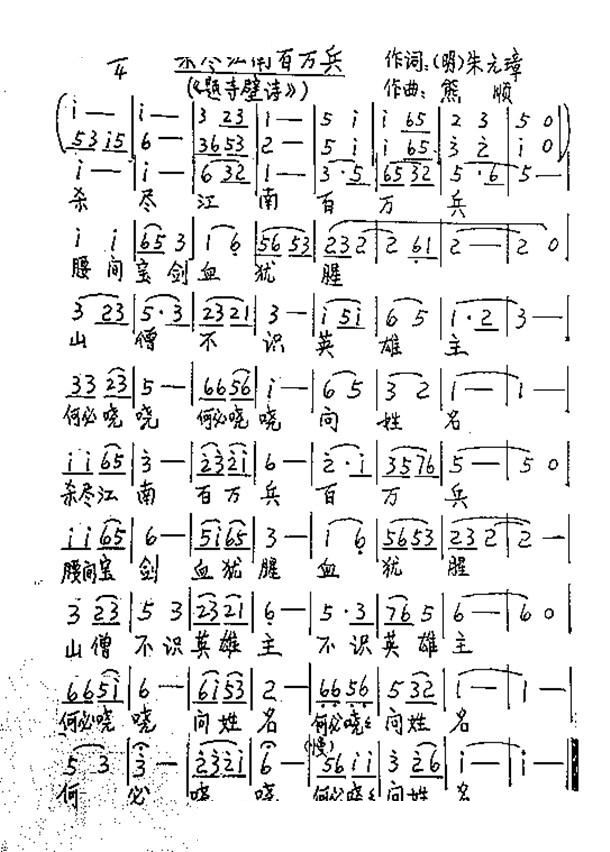 杀尽江南百万兵
作词:(明)朱元璋
4
(《题寺壁诗》)
作曲: 熊 顺
(i — | i — | 3 23 | i — | 5 i | i 65 | 2 3 | 5 0)
5 3 i 5 | 6 — | 36 53 | 2 — | 5 i | i 65 | 3 2 | i 0
i — | i — | 6 32 | 1 — | 3 · 5 | 65 32 | 5 · 6 | 5 —
杀 尽 江 南 百 万 兵
i i | 65 3 | 1 6 | 56 53 | 23 2 | 2 61 | 2 — | 2 0
腰 间 宝 剑 血 犹 腥
3 23 | 5 · 3 | 23 21 | 3 — | i 5i | 6 5 | 1 · 2 | 3 —
山 僧 不 识 英 雄 主
33 23 | 5 — | 66 56 | i — | 6 5 | 3 2 | 1 — | 1 —
何必哓 哓 何必哓 哓 问 姓 名
i i 65 | 3 — | 23 2i | 6 — | 2 · i | 35 76 | 5 — | 5 0
杀尽江 南 百万 兵 百 万 兵
i i 65 | 6 — | 5i 65 | 3 — | 1 6 | 56 53 | 23 2 | 2 —
腰间宝 剑 血犹 腥 血 犹 腥
3 23 | 5 3 | 23 21 | 6 — | 5 · 3 | 76 5 | 6 — | 6 0
山 僧 不 识 英雄 主 不 识 英 雄 主
66 5i | 6 — | 6i 53 | 2 — | 66 56 | 5 32 | 1 — | 1 —
何必哓 哓 问姓 名 何必哓哓 问姓 名
(慢)
5 3 | 3 — | 23 2i | 6 — | 56 i i | 3 26 | i — | i —
何 必 哓 哓 何必哓哓 问姓 名